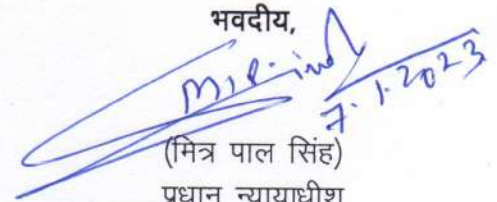 भवदीय,
7.1.2023
(मित्र पाल सिंह)
प्रधान न्यायाधीश